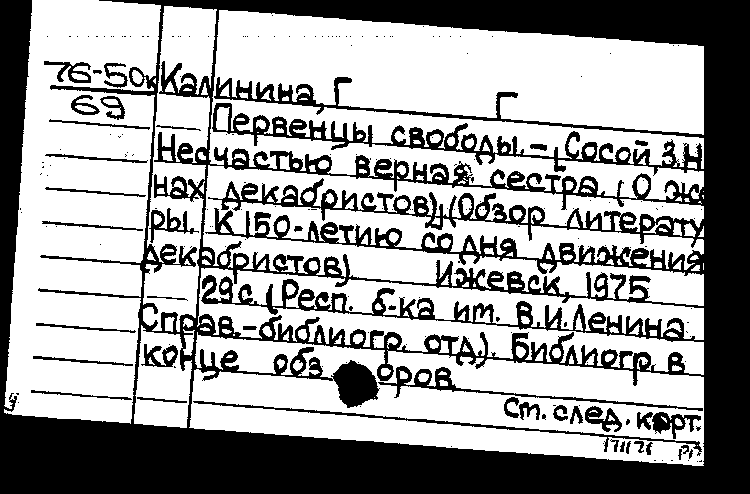 76-50к Калинина, Г Г
69
Первенцы свободы. – [Сосой, З.Н
Несчастью верная сестра. (О же
нах декабристов)] (Обзор литерату
ры. К 150-летию со дня движения
декабристов) Ижевск, 1975
29с. (Респ. б-ка им. В.И.Ленина.
Справ.-библиогр. отд.). Библиогр. в
конце обз оров.
Ст. след. карт.